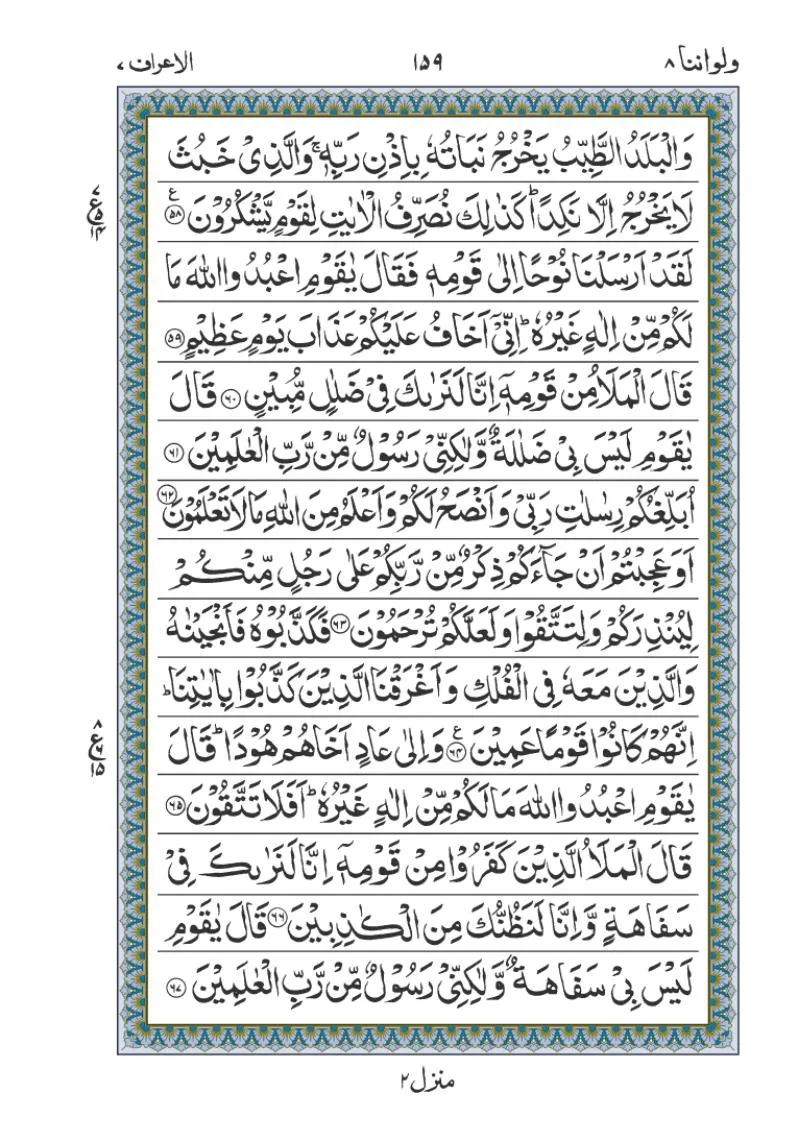 ولواننا ۸ ۱۵۹ الاعراف ۷
وَالْبَلَدُ الطَّيِّبُ يَخْرُجُ نَبَاتُهٗ بِاِذْنِ رَبِّهٖ ۚ وَالَّذِىْ خَبُثَ
لَا يَخْرُجُ اِلَّا نَكِدًا ؕ كَذٰلِكَ نُصَرِّفُ الْاٰيٰتِ لِقَوْمٍ يَّشْكُرُوْنَ ﴿۵۸﴾ ع
۷ ع ۵ ۱۴
لَقَدْ اَرْسَلْنَا نُوْحًا اِلٰى قَوْمِهٖ فَقَالَ يٰقَوْمِ اعْبُدُوا اللّٰهَ مَا
لَكُمْ مِّنْ اِلٰهٍ غَيْرُهٗ ؕ اِنِّىْۤ اَخَافُ عَلَيْكُمْ عَذَابَ يَوْمٍ عَظِيْمٍ ﴿۵۹﴾
قَالَ الْمَلَاُ مِنْ قَوْمِهٖۤ اِنَّا لَنَرٰىكَ فِىْ ضَلٰلٍ مُّبِيْنٍ ﴿۶۰﴾ قَالَ
يٰقَوْمِ لَيْسَ بِىْ ضَلٰلَةٌ وَّلٰكِنِّىْ رَسُوْلٌ مِّنْ رَّبِّ الْعٰلَمِيْنَ ﴿۶۱﴾
اُبَلِّغُكُمْ رِسٰلٰتِ رَبِّىْ وَاَنْصَحُ لَكُمْ وَاَعْلَمُ مِنَ اللّٰهِ مَا لَا تَعْلَمُوْنَ ﴿۶۲﴾
اَوَعَجِبْتُمْ اَنْ جَآءَكُمْ ذِكْرٌ مِّنْ رَّبِّكُمْ عَلٰى رَجُلٍ مِّنْكُمْ
لِيُنْذِرَكُمْ وَلِتَتَّقُوْا وَلَعَلَّكُمْ تُرْحَمُوْنَ ﴿۶۳﴾ فَكَذَّبُوْهُ فَاَنْجَيْنٰهُ
وَالَّذِيْنَ مَعَهٗ فِى الْفُلْكِ وَاَغْرَقْنَا الَّذِيْنَ كَذَّبُوْا بِاٰيٰتِنَا ؕ
اِنَّهُمْ كَانُوْا قَوْمًا عَمِيْنَ ﴿۶۴﴾ ع وَاِلٰى عَادٍ اَخَاهُمْ هُوْدًا ؕ قَالَ
۸ ع ۶ ۱۵
يٰقَوْمِ اعْبُدُوا اللّٰهَ مَا لَكُمْ مِّنْ اِلٰهٍ غَيْرُهٗ ؕ اَفَلَا تَتَّقُوْنَ ﴿۶۵﴾
قَالَ الْمَلَاُ الَّذِيْنَ كَفَرُوْا مِنْ قَوْمِهٖۤ اِنَّا لَنَرٰىكَ فِىْ
سَفَاهَةٍ وَّاِنَّا لَنَظُنُّكَ مِنَ الْكٰذِبِيْنَ ﴿۶۶﴾ قَالَ يٰقَوْمِ
لَيْسَ بِىْ سَفَاهَةٌ وَّلٰكِنِّىْ رَسُوْلٌ مِّنْ رَّبِّ الْعٰلَمِيْنَ ﴿۶۷﴾
منزل ۲